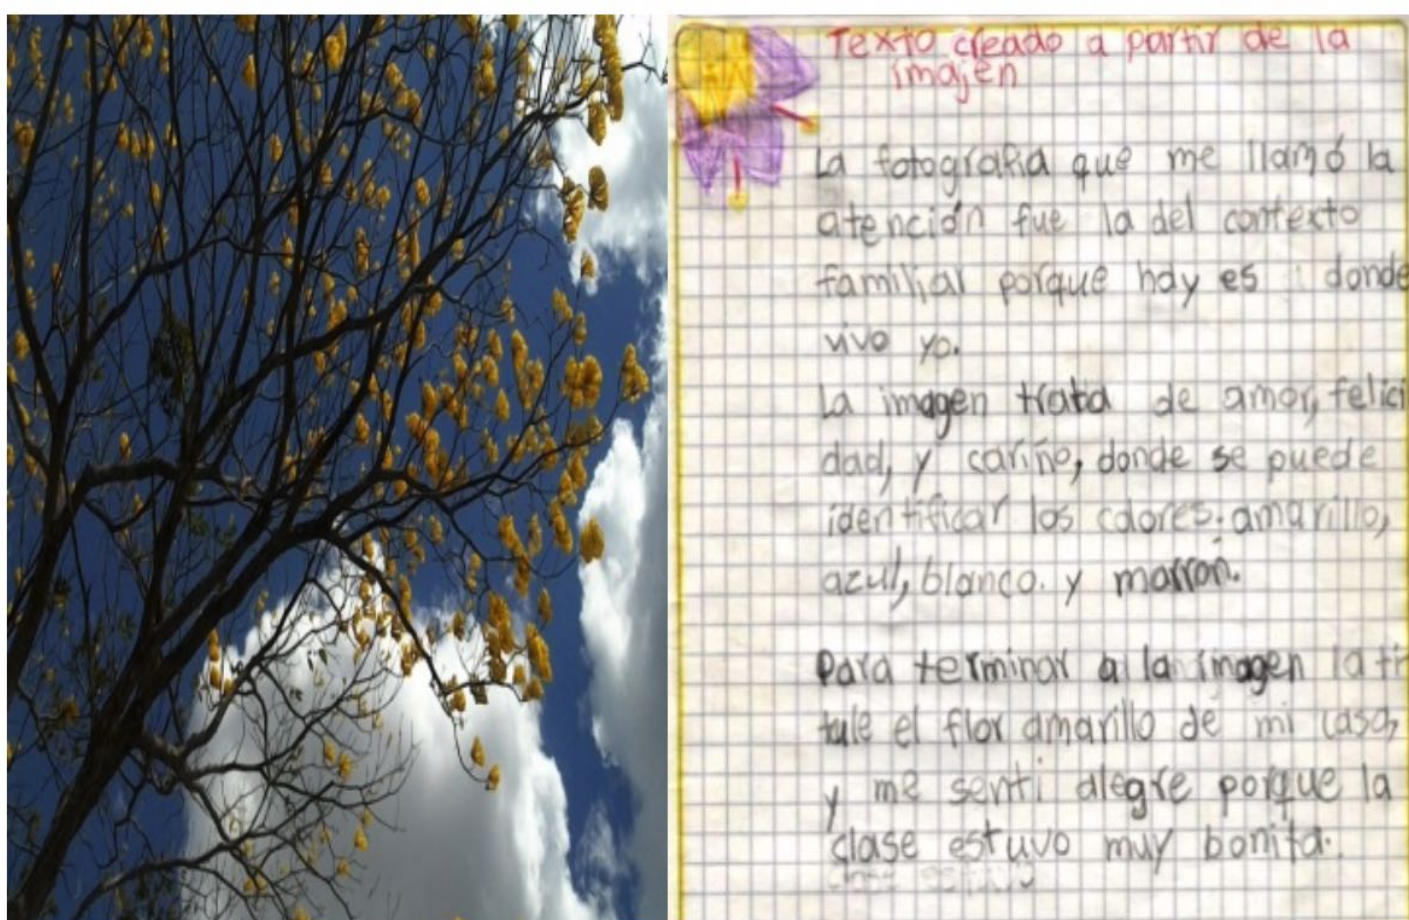 Texto creado a partir de la
imajen
La fotografia que me llamó la
atención fue la del contexto
familiar porque hay es donde
vivo yo.
La imagen trata de amor, felici
dad, y cariño, donde se puede
identificar los colores: amarillo,
azul, blanco. y marrón.
Para terminar a la imagen la ti
tule el flor amarillo de mi casa,
y me senti alegre porque la
clase estuvo muy bonita.